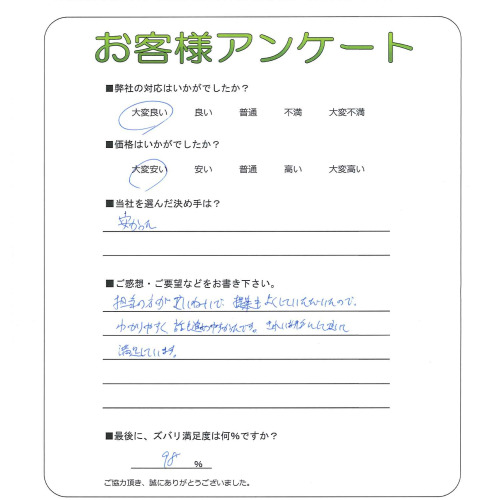 お客様アンケート
■弊社の対応はいかがでしたか?
大変良い 良い 普通 不満 大変不満
■価格はいかがでしたか?
大変安い 安い 普通 高い 大変高い
■当社を選んだ決め手は?
安かった
■ご感想・ご要望などをお書き下さい。
担当の方が ていねいで、提案も よくしていただいたので、
わかりやすく 話も進めやすかったです。きれいに して
満足しています。
■最後に、ズバリ満足度は何%ですか?
98 %
ご協力頂き、誠にありがとうございました。